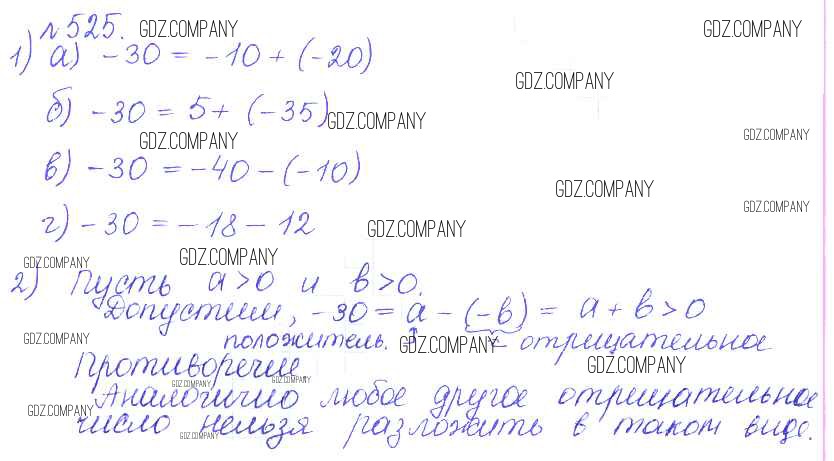 №525. GDZ.COMPANY GDZ.COMPANY
1) а) -30 = -10 + (-20)
GDZ.COMPANY
б) -30 = 5 + (-35) GDZ.COMPANY
GDZ.COMPANY GDZ.COMPANY
в) -30 = -40 - (-10)
GDZ.COMPANY
GDZ.COMPANY
г) -30 = -18 - 12 GDZ.COMPANY
GDZ.COMPANY GDZ.COMPANY
2) Пусть a>0 и b>0.
Допустим, -30 = a - (-b) = a + b > 0
GDZ.COMPANY положитель. GDZ.COMPANY отрицательное
Противоречие GDZ.COMPANY
GDZ.COMPANY GDZ.COMPANY
Аналогично любое другое отрицательное
GDZ.COMPANY
число нельзя разложить в таком виде.
GDZ.COMPANY